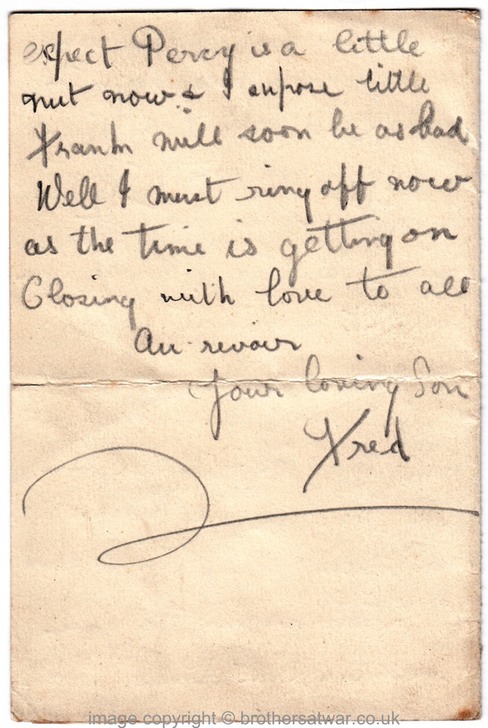 expect Percy is a little
nut now & I supose little
Frank will soon be as bad
Well I must ring off now
as the time is getting on
Closing with love to all
Au revoir
Your loving Son
Fred
image copyright © brothersatwar.co.uk